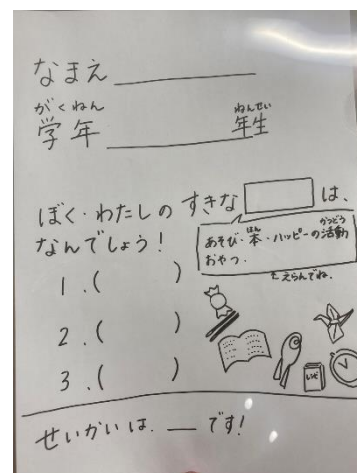 なまえ
がくねん ねんせい
学年 年生
ぼく・わたしの すきな は、
なんでしょう！
かつどう
あそび・本・ハッピーの活動
ほん
おやつ.
えらんでね.
1.( )
2.( )
3.( )
せいかいは. です!